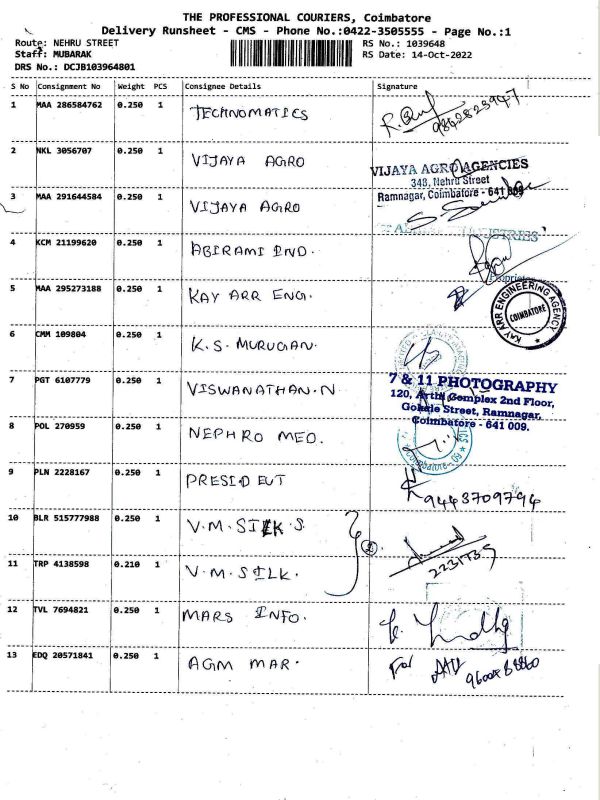 THE PROFESSIONAL COURIERS, Coimbatore
Delivery Runsheet - CMS - Phone No.:0422-3505555 - Page No.:1
Route: NEHRU STREET
RS No.: 1039648
Staff: MUBARAK
RS Date: 14-Oct-2022
DRS No.: DCJB103964801
S No Consignment No Weight PCS Consignee Details Signature
1 MAA 286584762 0.250 1 TECHNOMATICS
9842823947
2 NKL 3056707 0.250 1 VIJAYA AGRO
VIJAYA AGRO AGENCIES
348, Nehru Street
Ramnagar, Coimbatore - 641 009
3 MAA 291644584 0.250 1 VIJAYA AGRO
4 KCM 21199620 0.250 1 ABIRAMI IND.
Proprietor
5 MAA 295273188 0.250 1 KAY ARR ENG.
KAY ARR ENGINEERING AGENCY
COIMBATORE
6 CMM 109804 0.250 1 K.S. MURUGAN.
7 PGT 6107779 0.250 1 VISWANATHAN.N
7 & 11 PHOTOGRAPHY
120, Arthi Complex 2nd Floor,
Gokale Street, Ramnagar,
Coimbatore - 641 009.
8 POL 270959 0.250 1 NEPHRO MED.
Coimbatore-09
9 PLN 2228167 0.250 1 PRESIDEUT
9443709794
10 BLR 515777988 0.250 1 V.M.SILK.S
11 TRP 4138598 0.210 1 V.M.SILK.
2231735
12 TVL 7694821 0.250 1 MARS INFO.
13 EDQ 20571841 0.250 1 AGM MAR.
For